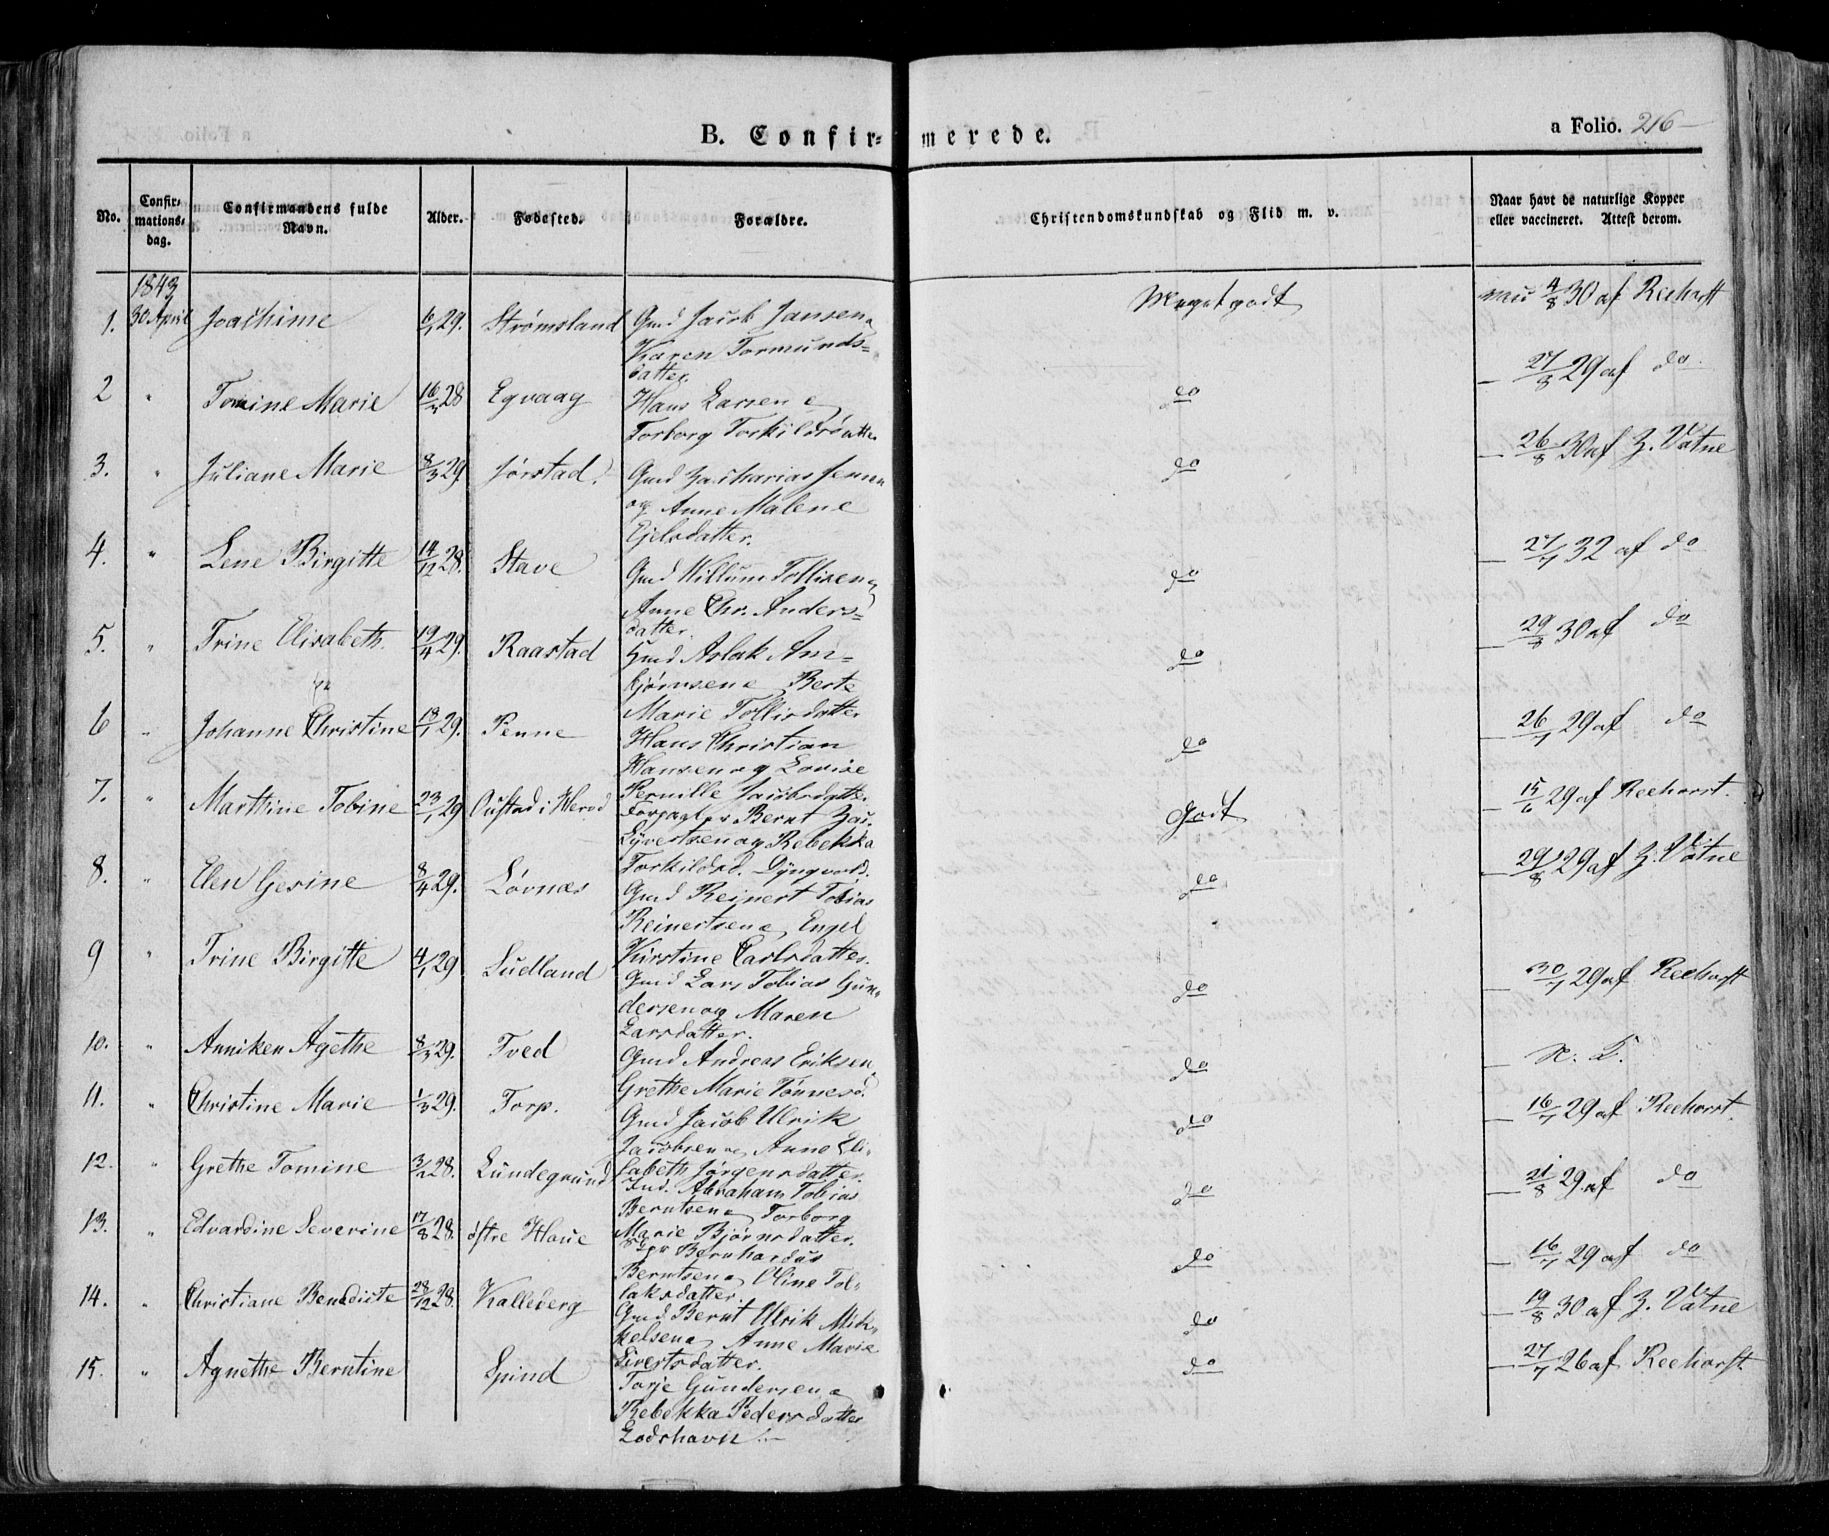 B. Confir-merede.
a Folio. 216
No.
Confir-
mations-
dag.
Confirmandens fulde
Navn.
Alder.
Fødested.
Forældre.
Christendomskundskab og Flid m. v.
Naar havt de naturlige Kopper
eller vaccineret. Attest derom.
1843
1. 30 April Joachime 6/1 29. Strømsland Gmd Jacob Jansen
Karen Tormunds=
datter.
Meget godt
4/8 30 af Reehorst
2 " Tomine Marie 16/3 28 Egvaag Hans Larsen
Torborg Torkildsdatter
do
27/8 29 af do
3. " Juliane Marie 8/3 29. Jørstad. Gmd Zacharias Jensen
og Anne Malene
Ejelsdatter.
do
26/8 30 af Z. Vatne
4. " Lene Birgitte 14/12 28. Stave Gmd Willum Tollisen
Anne Chr. Anders=
datter.
do
27/7 32 af do
5. " Trine Elisabeth. 19/4 29. Raastad Gmd Aslak Am=
bjørnsen Berte
Marie Tollisdatter
do
29/8 30 af do
6 " Johanne Christine 18/1 29. Penne Hans Christian
Hansen og Lovise
Pernille Jacobsdatter.
do
26/7 29 af do
7. " Marthine Tobine 23/1 29 Oustad i Herod Forpagter Bernt Zac.
Syvertsen og Rebekka
Torkildsd. Dyngvold.
Godt
15/6 29 af Reehorst.
8. " Elen Gesine 8/4 29. Løvnæs Gmd Reinert Tobias
Reinertsen Engel
Kirstine Carlsdatter.
do
29/8 29 af Z. Vatne
9 " Trine Birgitte 4/1 29 Sudland Gmd Lars Tobias Gun-
dersen og Maren
Larsdatter.
do
30/7 29 af Reehorst
10. " Anniken Agethe 8/3 29. Tved Gmd Andreas Eriksen
Grethe Marie Tønnesd.
do
N. K.
11. " Christine Marie 1/3 29. Torp. Gmd Jacob Ulrik
Jacobsen Anne Eli-
sabeth Jørgensdatter.
do
16/7 29 af Reehorst.
12. " Grethe Tomine 3/12 28. Lundegrund Ind. Abraham Tobias
Berntsen Torborg
Marie Bjørnsdatter.
do
21/8 29. af do
13. " Edvardine Severine 17/8 28. østre Haue Bernhardus
Berntsen Oline Tol-
laksdatter.
do
16/7 29 af do
14. " Christiane Benedicte 28/12 28. Kalleberg Gmd Bernt Ulrik Mik-
kelsen Anne Marie
Sivertsdatter.
do
19/8 30 af Z. Vatne
15. " Agnethe Berntine Spind Torje Gundersen
Rebekka Pedersdatter
Lodshavn.
do
27/7 26 af Reehorst.